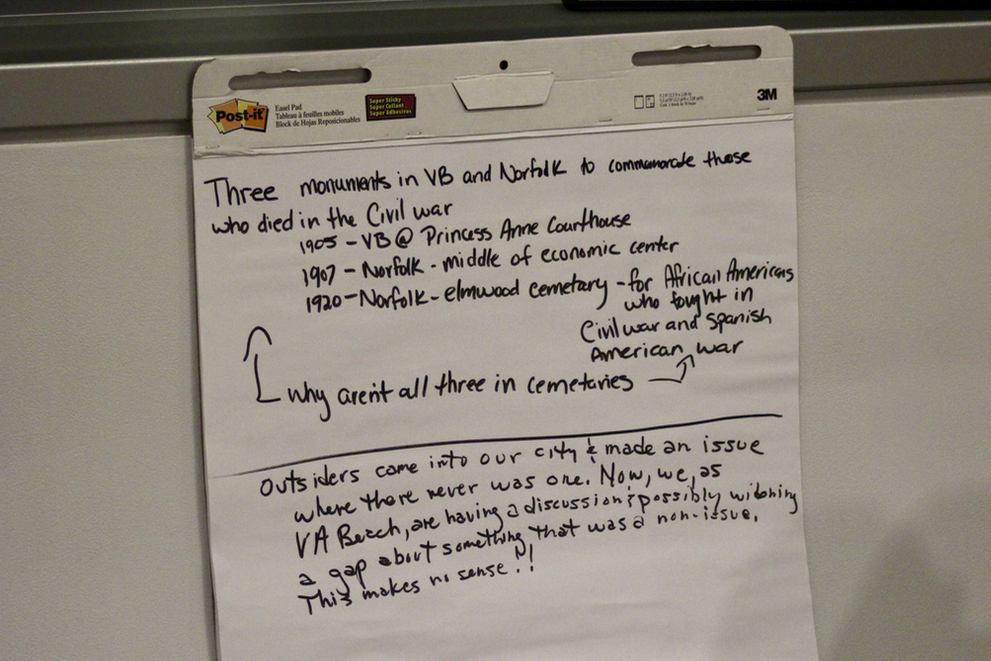 Post-it
Easel Pad
Tableau à feuilles mobiles
Block de Hojas Reposicionables
Super Sticky
Super Collant
Super Adhesivas
3M
Three monuments in VB and Norfolk to commamorate those
who died in the Civil war
1905 - VB @ Princess Anne Courthouse
1907 - Norfolk - middle of economic center
1920 - Norfolk - elmwood cemetary - for African Americans
who fought in
Civil war and Spanish
American war
why aren't all three in cemetaries
Outsiders came into our city & made an issue
where there never was one. Now, we, as
VA Beach, are having a discussion & possibly widening
a gap about something that was a non-issue.
This makes no sense!!